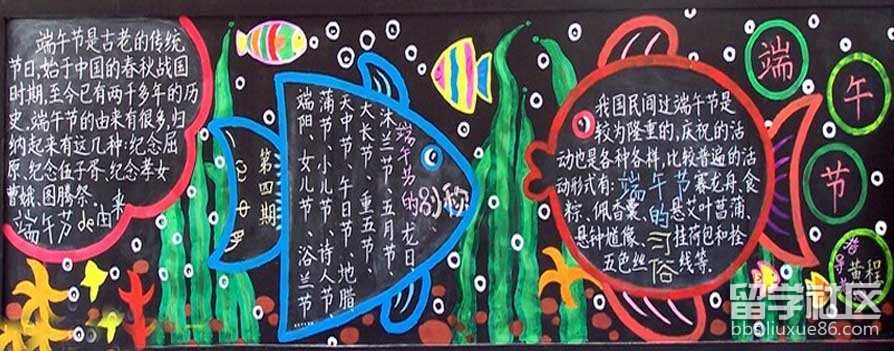 端午节是古老的传统
节日,始于中国的春秋战国
时期,至今已有两千多年的历
史。端午节的由来有很多,归
纳起来有这几种:纪念屈
原、纪念伍子胥、纪念孝女
曹娥、图腾祭。
端午节de由来
第四期
端午节的别称
龙日、
沐兰节、五月节、
大长节、重五节、
天中节、午日节、地腊
蒲节、小儿节、诗人节、
端阳、女儿节、浴兰节
我国民间过端午节是
较为隆重的,庆祝的活
动也是各种各样,比较普遍的活
动形式有:赛龙舟、食
粽、佩香囊、悬艾叶菖蒲、
悬钟馗像、挂荷包和拴
五色丝线等。
端午节
的
习
俗
端
午
节
黄程
留学社区
bbs.liuxue86.com